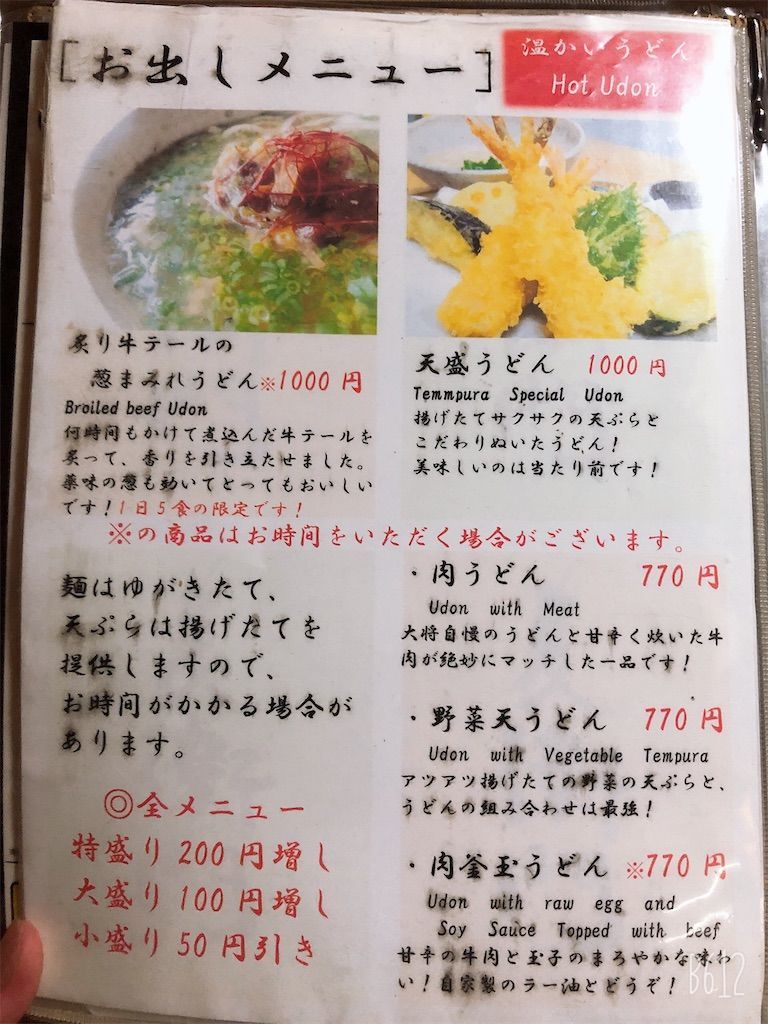 [お出しメニュー]
温かいうどん
Hot Udon
炙り牛テールの
葱まみれうどん※1000円
Broiled beef Udon
何時間もかけて煮込んだ牛テールを
炙って、香りを引き立たせました。
薬味の葱も動いてとってもおいしい
です!1日5食の限定です!
天盛うどん 1000円
Temmpura Special Udon
揚げたてサクサクの天ぷらと
こだわりぬいたうどん!
美味しいのは当たり前です!
※の商品はお時間をいただく場合がございます。
麺はゆがきたて、
天ぷらは揚げたてを
提供しますので、
お時間がかかる場合が
あります。
◎全メニュー
特盛り200円増し
大盛り100円増し
小盛り50円引き
・肉うどん 770円
Udon with Meat
大将自慢のうどんと甘辛く炊いた牛
肉が絶妙にマッチした一品です!
・野菜天うどん 770円
Udon with Vegetable Tempura
アツアツ揚げたての野菜の天ぷらと、
うどんの組み合わせは最強!
・肉釜玉うどん ※770円
Udon with raw egg and
Soy Sauce Topped with beef
甘辛の牛肉と玉子のまろやかな味わ
い!自家製のラー油とどうぞ!
B612